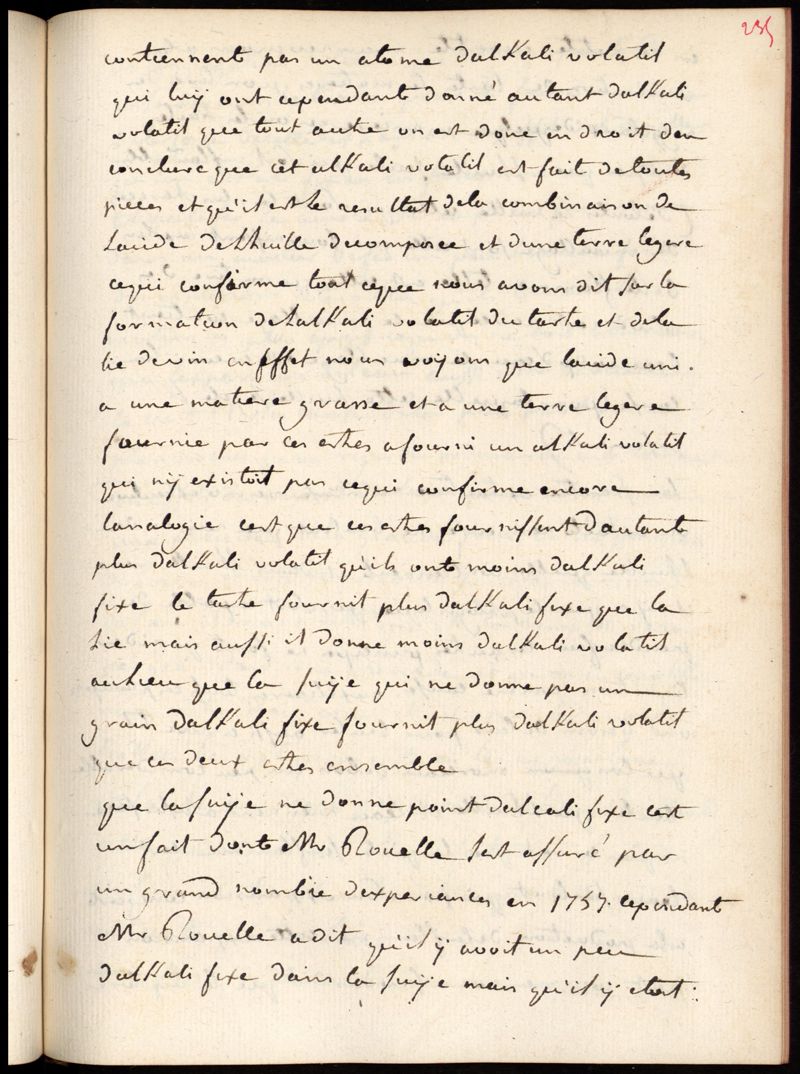 235
contiennent pas un atome dalKali volatil
qui luÿ ont ependant donné autant dalKali
volatil que tout autre on est donc en droit den
conclure que cet alKali volatil est fait de toutes
pieces et qu'il est le resultat dela combinaison de
lacide del'huille decomposee et dune terre legere
cequi confirme tout ceque nous avons dit sur la
formation delalKali volatil du tartre et dela
lie devin en effet nous voÿons que lacide uni
a une matiere grasse et a une terre legere
fournie par ces estres a fourni un alKali volatil
qui nÿ existoit pas cequi confirme encore
lanalogie cest que ces estres fournissent dautant
plus dalKali volatil qu'ils ont moins dalKali
fixe le tartre fournit plus dalKali fixe que la
lie mais aussi il donne moins dalKali volatil
aulieu que la suÿe qui ne donne pas un
grain dalKali fixe fournit plus dalKali volatil
que ces deux estres ensemble
que la suÿe ne donne point dalcali fixe cest
un fait dont Mr Rouelle sest assuré par
un grand nombre dexperiances en 1757. cependant
Mr Rouelle a dit qu'il ÿ avoit un peu
dalKali fixe dans la suÿe mais qu'il ÿ etoit